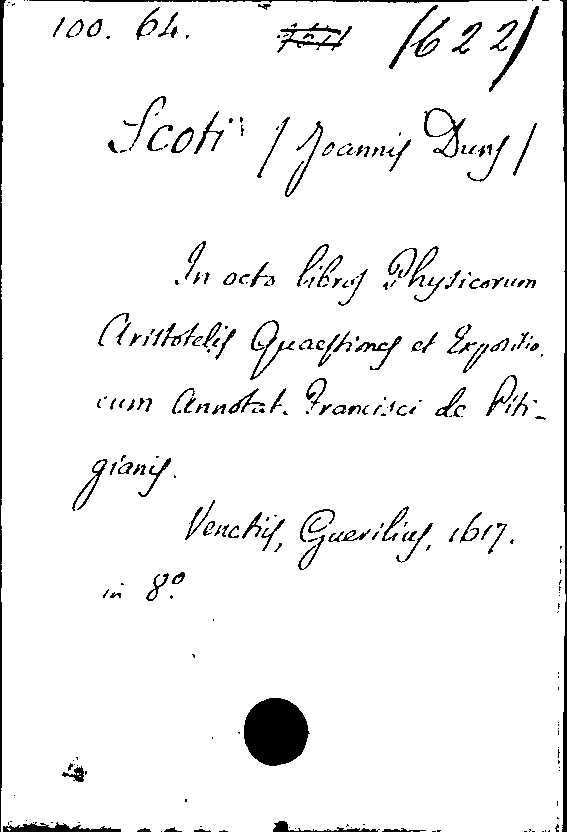 100. 64. (622)
Scoti (Joannis Duns)
In octo libros Physicorum
Aristotelis Quaestiones et Expositio.
cum Annotat. Francisci de Piti-
gianis.
Venetiis, Guerilius, 1617.
in 8º